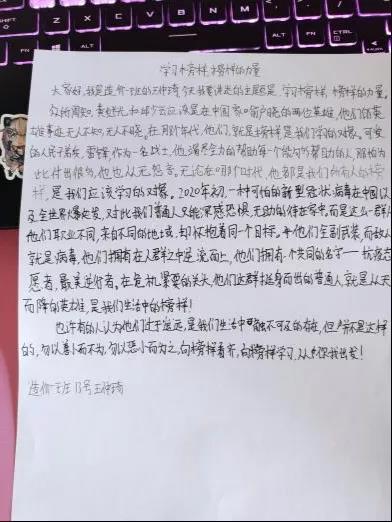 学习榜样,榜样的力量
大家好,我是造价一班的王仲琦,今天我要讲述的主题是 学习榜样,榜样的力量。
众所周知,黄继光和邱少云应该是在中国家喻户晓的两位英雄,他们的英
雄事迹无人不知,无人不晓。在那个年代,他们就是榜样是我们学习的对象。可爱
的人民子弟兵,雷锋,作为一名战士,他竭尽全力的帮助每一个能够帮助的人,哪怕为
此付出很多,他也从无怨言。无论在哪个时代,他都是我们所有人的榜
样,是我们应该学习的对象。2020年初,一种可怕的新型冠状病毒在中国以
及全世界爆发,对此我们普通人只能深感恐惧,无助的待在家中,而是这么一群人
他们职业不同,来自不同的地域,却怀抱着同一个目标。他们全副武装,而敌人
就是病毒,他们拥有在人群之中逆流而上,他们拥有一个共同的名字——抗疫志
愿者,最美逆行者,在危机紧要的关头,他们这群挺身而出的普通人就是从天
而降的英雄,是我们生活中的榜样!
也许有的人认为他们过于遥远,是我们生活中可触不可及的存在,但并不是这样
的,勿以善小而不为,勿以恶小而为之,向榜样看齐,向榜样学习,从你我出发!
造价一班 13号 王仲琦